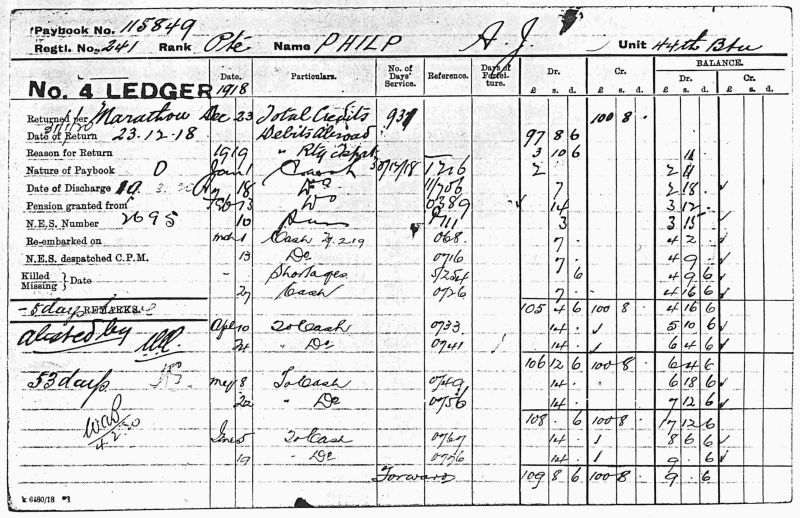 Paybook No. 115849
Regtl. No. 241 Rank Pte Name PHILP A. J. Unit 44th Btn
No. 4 LEDGER
Date. 1918 Particulars. No. of Days' Service. Reference. Days of Forfeiture. Dr. £ s. d. Cr. £ s. d. BALANCE. Dr. £ s. d. Cr. £ s. d.
Returned per Marathon Dec 23 Total Credits 937 100 8 .
Date of Return 23.12.18 Debits Abroad 97 8 6
Reason for Return 1919 " 3 10 6 11
Nature of Paybook D Jany 1 1216 2 2 11
Date of Discharge 18 11/706 7 2 18 ✓
Pension granted from Feb 0389 14 3 12
N.E.S. Number 2695 10 3 3 15 ✓
Re-embarked on Mch 1 Cash 068 7 . 4 2 ✓
N.E.S. despatched C.P.M. 13 Do 0716 7 . 4 9 ✓
Killed Missing } Date - Shortages 5/254 6 4 9 6 ✓
27 Cash 0726 7 . 4 16 6 ✓
- 5 days REMARKS. 105 4 6 100 8 4 16 6
Apl 10 To Cash 0733 14 . 5 10 6 ✓
24 " Do 0741 14 . 6 4 6 ✓
106 12 6 100 8 . 6 4 6
53 days May 8 To Cash 0749 14 . 6 18 6 ✓
22 " Do 0756 14 . 7 12 6 ✓
108 . 6 100 8 . 7 12 6
4.2.20 June 5 To Cash 0767 14 . 8 6 6 ✓
19 " Do 0776 14 . 9 . 6 ✓
Forward 109 8 6 100 8 . 9 . 6
k 6480/18